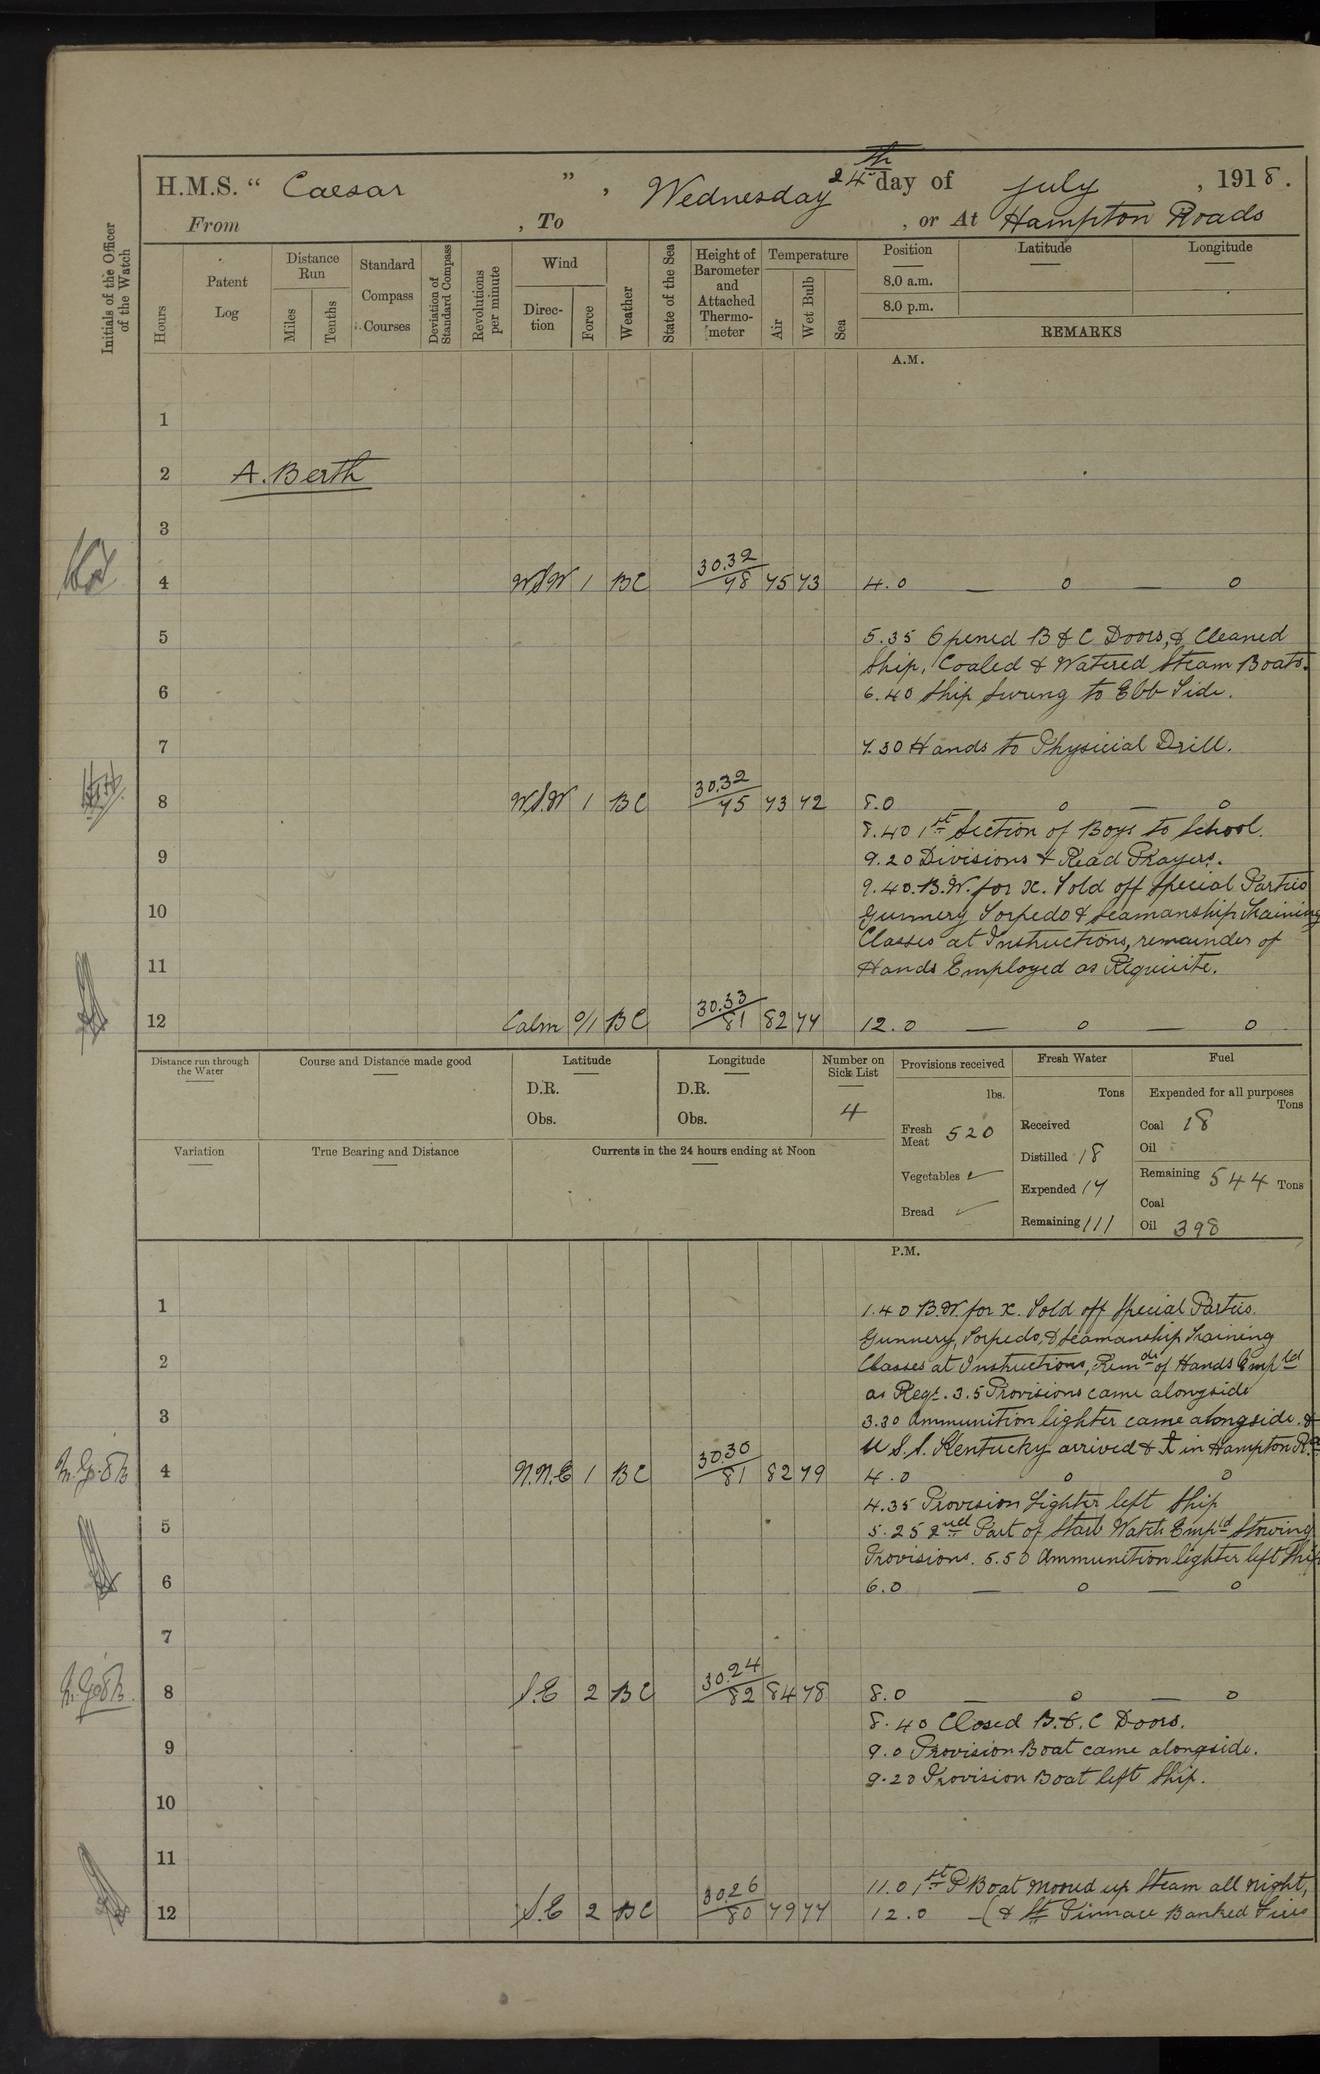 H.M.S. “ Caesar ” , Wednesday 24th day of July , 1918.
From , To , or At Hampton Roads
Initials of the Officer of the Watch
Hours
Patent Log
Distance Run
Miles
Tenths
Standard Compass Courses
Deviation of Standard Compass
Revolutions per minute
Wind
Direction
Force
Weather
State of the Sea
Height of Barometer and Attached Thermometer
Temperature
Air
Wet Bulb
Sea
Position
8.0 a.m.
8.0 p.m.
Latitude
Longitude
REMARKS
A.M.
1
2 A. Berth
3
4 W.S.W 1 BC 30.32 78 75 73 4.0 — 0 — 0
5 5.35 Opened B & C Doors, & Cleaned
Ship, Coaled & Watered Steam Boats.
6 6.40 Ship Swung to Ebb Tide.
7 7.30 Hands to Physicial Drill.
8 W.S.W 1 BC 30.32 75 73 72 8.0 0 — 0
8.40 1st Section of Boys to School.
9 9.20 Divisions & Read Prayers.
9.40. B.W. for x. Told off Special Parties
10 Gunnery Torpedo & Seamanship Training
Classes at Instructions, remainder of
11 Hands Employed as Requisite.
12 Calm 0/1 BC 30.33 81 82 77 12.0 — 0 — 0
Distance run through the Water
Course and Distance made good
Latitude
D.R.
Obs.
Longitude
D.R.
Obs.
Number on Sick List
4
Provisions received
lbs.
Fresh Meat 520
Vegetables ✓
Bread ✓
Fresh Water
Tons
Received
Distilled 18
Expended 17
Remaining 111
Fuel
Expended for all purposes
Tons
Coal 18
Oil
Remaining 544 Tons
Coal
Oil 398
Variation
True Bearing and Distance
Currents in the 24 hours ending at Noon
P.M.
1 1.40 B.W. for x. Told off Special Parties.
Gunnery, Torpedo, & Seamanship Training
2 Classes at Instructions, Remdr of Hands Empld
as Reqt. 3.5 Provisions came alongside
3 3.30 Ammunition lighter came alongside. &
U.S.S. Kentucky arrived & ⚓ in Hampton Rds
4 N.N.E 1 BC 30.30 81 82 79 4.0 0 0
4.35 Provision Lighter left Ship
5 5.25 2nd Part of Starb Watch Empld Stowing
Provisions. 5.50 Ammunition lighter left Ship
6 6.0 — 0 — 0
7
8 S.E 2 BC 30.24 82 84 78 8.0 — 0 — 0
8.40 Closed B. & C Doors.
9 9.0 Provision Boat came alongside.
9.20 Provision Boat left Ship.
10
11
11.0 1st P Boat moored up Steam all night,
12 S.E 2 BC 30.26 80 79 77 12.0 — (& St Pinnace Banked Fires